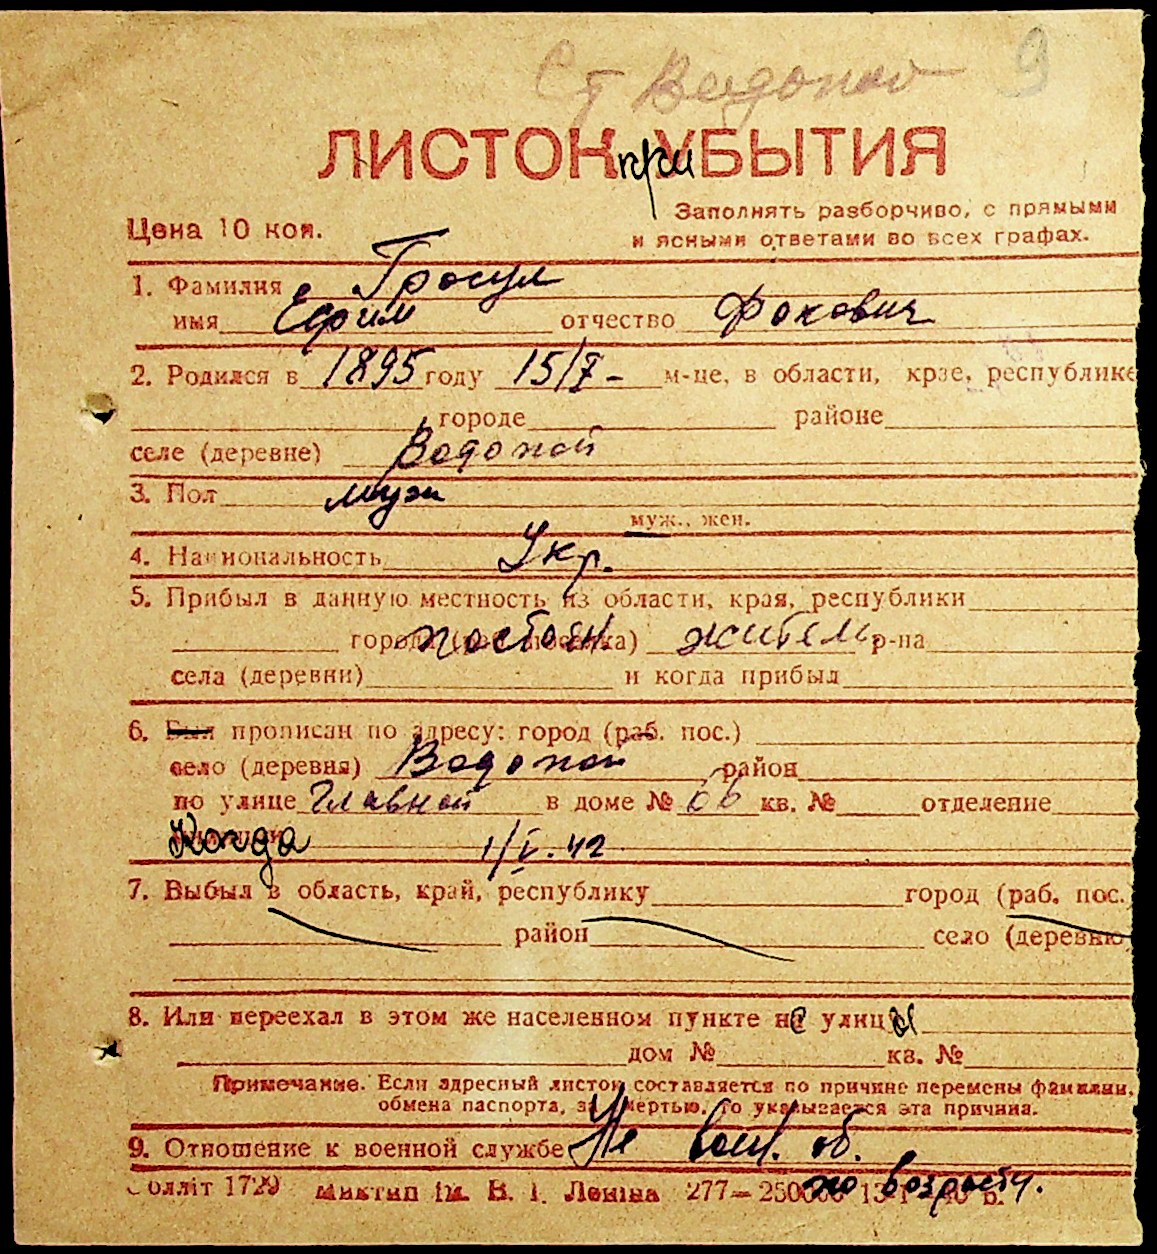 Ст Водопой 9
ЛИСТОК при УБЫТИЯ
Цена 10 коп.
Заполнять разборчиво, с прямыми
и ясными ответами во всех графах.
1. Фамилия Гросул
имя Ефрим отчество Фокович
2. Родился в 1895 году 15/V- м-це, в области, крае, республике
городе районе
селе (деревне) Водопой
3. Пол муж
муж., жен.
4. Национальность Укр.
5. Прибыл в данную местность из области, края, республики
города (раб. поселка) постоян. житель р-на
села (деревни) и когда прибыл
6. Был прописан по адресу: город (раб. пос.)
село (деревня) Водопой район
по улице Главной в доме № 66 кв. № отделение
Когда 1/V. 42
7. Выбыл в область, край, республику город (раб. пос.
район село (деревню
8. Или переехал в этом же населенном пункте не улицы
дом № кв. №
Примечание. Если адресный листок составляется по причине перемены фамилии,
обмена паспорта, за смертью, то указывается эта причина.
9. Отношение к военной службе Не воен. об.
по возрасту.
Солліт 1729 Миктип ім. В. І. Леніна 277—250000 13